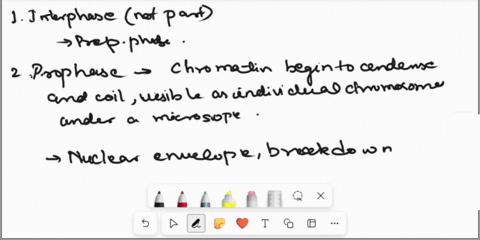 1. Interphase (not part)
→ Prep. phase.
2. Prophase → Chromatin begin to condense
and coil, visible as individual chromosome
under a microscope.
→ Nuclear envelope, breakdown